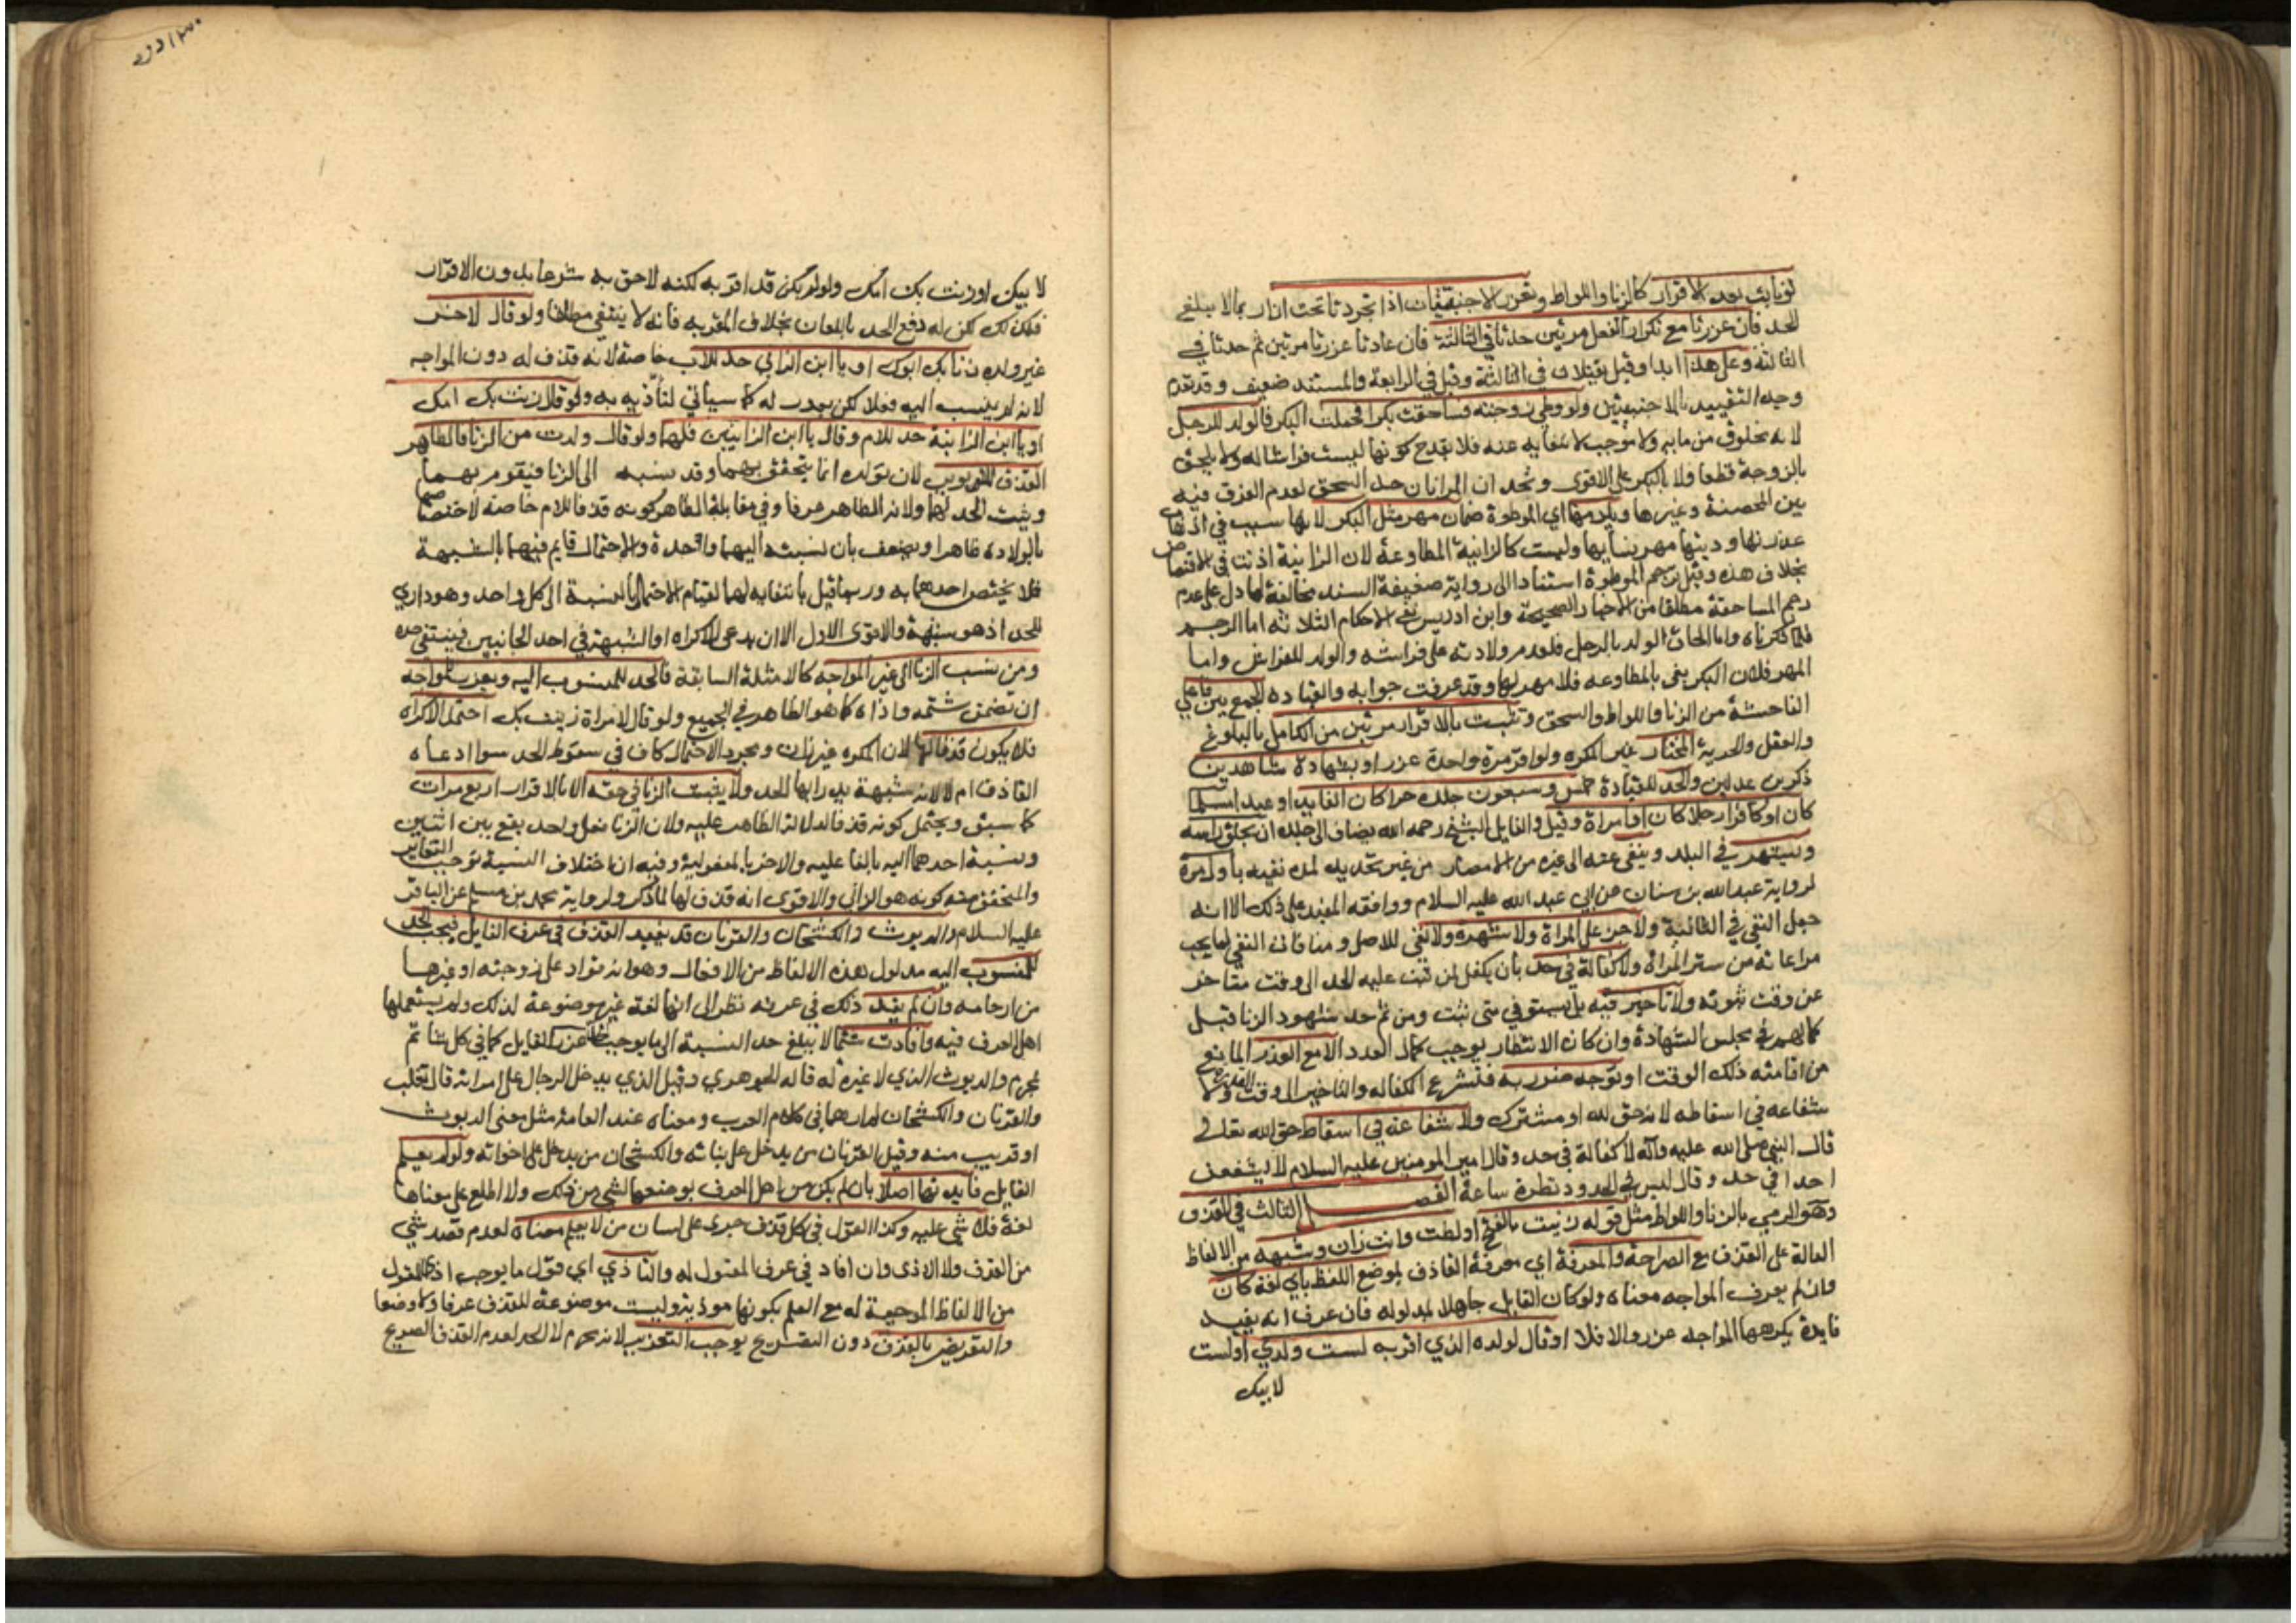 لو تابت بعد الاقرار كالزنا واللواط وتعزر الاجنبيتان اذا تجردتا تحت ازار بما لا يبلغ
الحد فان عزرتا مع تكرار الفعل مرتين حدتا في الثالثة فان عادتا عزرتا مرتين ثم حدتا في
الثالثة وعلى هذا ابدا وقيل يقتلان في الثالثة وقيل في الرابعة والمستند ضعيف وقد تقدم
وجه التقييد بالاجنبيتين ولو وطئ زوجته فساحقت بكرا فحملت البكر فالولد للرجل
لانه مخلوق من مايه ولا موجب لانتفايه عنه فلا يقدح كونها ليست فراشا له ولا يلحق
بالزوجة قطعا ولا بالبكر على الاقوى وتحد ان المراتان حد السحق لعدم الفرق فيه
بين المحصنة وغيرها ويلزمها اي الموطوة ضمان مهر مثل البكر لانها سبب في اذهاب
عذرتها وديتها مهر نسايها وليست كالزانية المطاوعة لان الزانية اذنت في الاقتضاض
بخلاف هذه وقيل ترجم الموطوة استنادا الى رواية ضعيفة السند مخالفة لما دل على عدم
رجم المساحقة مطلقا من الاخبار الصحيحة وابن ادريس نفى الاحكام الثلاثة اما الرجم
فلما ذكرناه واما الحاق الولد بالرجل فلعدم ولادته على فراشه والولد للفراش واما
المهر فلان البكر بغي بالمطاوعه فلا مهر لها وقد عرفت جوابه والقيادة الجمع بين فاعلي
الفاحشة من الزنا واللواط والسحق وتثبت بالاقرار مرتين من الكامل بالبلوغ
والعقل والحرية المختار غير المكره ولو اقر مرة واحدة عزر او بشهادة شاهدين
ذكرين عدلين والحد للقيادة خمس وسبعون جلدة حرا كان القايد او عبدا مسلما
كان او كافرا رجلا كان او امراة وقيل والقايل الشيخ رحمه الله يضاف الى جلده ان يحلق راسه
ويشهر في البلد وينفى عنه الى غيره من الامصار من غير تحديد لمدة نفيه باول مرة
لرواية عبد الله بن سنان عن ابي عبد الله عليه السلام ووافقه المفيد على ذلك الا انه
جعل النفي في الثانية ولا جز على المراة ولا شهرة ولا نفي للاصل ومنافاة النفي لما يجب
مراعاته من ستر المراة ولا كفالة في حد بان يكفل لمن ثبت عليه الحد الى وقت متاخر
عن وقت ثبوته ولا تاخير فيه بل يستوفى متى ثبت ومن ثم حد شهود الزنا قبل
كمالهم في مجلس الشهادة وان كان الانتظار يوجب كمال العدد الا مع العذر المانع
من اقامته ذلك الوقت او توجه ضرر به فتشرع الكفاله والتاخير الى وقت القدرة ولا
شفاعه في اسقاطه لانه حق لله او مشترك ولا شفاعة في اسقاط حق الله تعالى
قال النبي صلى الله عليه وآله لا كفالة في حد وقال امير المومنين عليه السلام لا يشفعن
احدا في حد وقال ليس في الحدود نظرة ساعة الفصل الثالث في القذف
وهو الرمي بالزنا واللواط مثل قوله زنيت بالفتح او لطت وانت زان وشبهه من الالفاظ
الدالة على القذف مع الصراحة والمعرفة اي معرفة القاذف بموضع اللفظ باي لغة كان
وان لم يعرف المواجه معناه ولو كان القايل جاهلا لمدلوله فان عرف انه يفيد
فايدة يكرهها المواجه عزر والا فلا او قال لولده الذي اقر به لست ولدي او لست
لابيك
٢٠ ١٣
لابيك او زنت بك امك ولو لم يكن قد اقر به لكنه لاحق به شرعا بدون الاقرار
فكذلك لكن له دفع الحد باللعان بخلاف المقر به فانه لا ينتفي مطلقا ولو قال لاخر
غير ولده زنا بك ابوك او يا ابن الزاني حد للاب خاصة لانه قذف له دون المواجه
لانه لم ينسب اليه فعلا لكن يعزر له كما سياتي لتأذيه به ولو قال زنت بك امك
او يا ابن الزانية حد للام وقال يا ابن الزانيين فلهما ولو قال ولدت من الزنا فالظاهر
القذف للابوين لان تولده انما يتحقق بهما وقد نسبه الى الزنا فيقوم بهما
ويثبت الحد لهما ولانه الظاهر عرفا وفي مقابلة الظاهر كونه قذفا للام خاصة لاختصاصها
بالولادة ظاهرا ويضعف بان نسبته اليهما واحدة والاحتمال قايم فيهما بالشبهة
فلا يختص احدهما به وربما قيل بانتفايه لهما لقيام الاحتمال بالنسبة الى كل واحد وهو دارئ
للحد اذ هو شبهة والاقوى الاول الا ان يدعي الاكراه او الشبهة في احد الجانبين فينتفي حده
ومن نسب الزنا الى غير المواجه كالامثلة السابقة فالحد للمنسوب اليه ويعزر للمواجه
ان تضمن شتمه واذاه كما هو الظاهر في الجميع ولو قال لامراة زنيت بك احتمل الاكراه
فلا يكون قذفا لها لان المكره غير زان ومجرد الاحتمال كاف في سقوط الحد سوا ادعاه
القاذف ام لا لانه شبهة يدرا بها الحد ولا يثبت الزنا في حقه الا بالاقرار اربع مرات
كما سبق ويحتمل كونه قذفا لدلالة الظاهر عليه ولان الزنا فعل واحد يقع بين اثنين
ونسبة احدهما اليه بالفاعليه والاخر بالمفعولية وفيه ان اختلاف النسبة توجب التغاير
والمتحقق منه كونه هو الزاني والاقوى انه قذف لها لما ذكر ولرواية محمد بن مسلم عن الباقر
عليه السلام والديوث والكشخان والقرنان قد يفيد القذف في عرف القايل فيجب الحد
للمنسوب اليه مدلول هذه الالفاظ من الافعال وهو انه قواد على زوجته او غيرها
من ارحامه وان لم يفد ذلك في عرفه نظرا الى انها لغة غير موضوعة لذلك ولم يستعملها
اهل العرف فيه وافادت شتما لا يبلغ حد النسبة الى ما يوجب الحد عزر القايل كما في كل شاتم
محرم والديوث الذي لا غيرة له قاله الجوهري وقيل الذي يدخل الرجال على امراته قال تغلب
والقرنان والكشخان لم ارهما في كلام العرب ومعناه عند العامة مثل معنى الديوث
او قريب منه وقيل القرنان من يدخل على بناته والكشخان من يدخل على اخواته ولو لم يعلم
القايل فايدتها اصلا بان لم يكن من اهل العرف بوضعها لشي من ذلك ولا اطلع على معناها
لغة فلا شي عليه وكذا القول في كل قذف جرى على لسان من لا يعلم معناه لعدم قصد شي
من القذف ولا الاذى وان افاد في عرف المقول له والتاذي اي قول ما يوجب اذى المقول
من الالفاظ الموجبة له مع العلم بكونها موذية وليست موضوعة للقذف عرفا ولا وضعا
والتعريض بالقذف دون التصريح يوجب التعزير لانه محرم لا الحد لعدم القذف الصريح